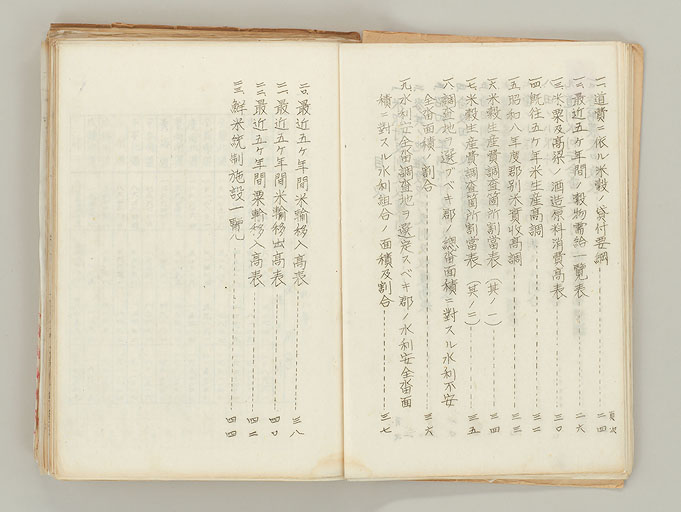 一一、道費ニ依ル米穀ノ貸付要綱 二四
一二、最近五ケ年間ノ穀物需給一覧表 二六
一三、米粟及高粱ノ酒造原料消費高表 三〇
一四、既往五ケ年米生産高調 三二
一五、昭和八年度郡別米實收高調 三三
一六、米穀生産費調査箇所割當表(其ノ一) 三四
一七、米穀生産費調査箇所割當表(其ノ二) 三五
一八、調査地ヲ選ブベキ郡ノ總畓面積ニ對スル水利不安
全畓面積ノ割合 三六
一九、水利安全畓調査地ヲ選定スベキ郡ノ水利安全畓面
積ニ對スル水利組合ノ面積及割合 三七
二〇、最近五ケ年間米輸移入高表 三八
二一、最近五ケ年間米輸移出高表 四〇
二二、最近五ケ年間粟輸移入高表 四二
二三、鮮米統制施設一覽 四四